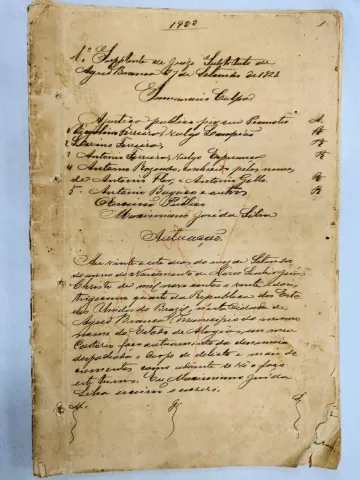 1922
1
1º Supplente de Juiz Substituto de
Agua Branca 27 de Setembro de 1922
Summario Culpa
A Justiça publica por seu Promotor A.
1 Ferreira, vulgo Lampião R
2 Livino Ferreira, R
3 Antonio Ferreira, vulgo Esperança R
4 Antonio Rozendo, conhecido pelos nomes
de Antonio , Antonio Gello R
5 - Antonio e outros R
Escrivão
Maximiano José da Silva
Autuação.
Aos vinte e sete dias do mez de Setembro
do anno do Nascimento de Nosso Senhor Jesus
Christo de mil nove centos e vinte e dois,
trigesimo quarto da Republica dos Esta
dos Unidos do Brazil, nesta
Agua Branca Municipio do mesmo
nome do Estado de Alagôas, em meu
Cartorio faço autuamento da denuncia
despachada e corpo de delicto e mais do
cumentos como adiante se vê e faço
este termo. Eu Maximiano José da
Silva escrivão o escrevi.